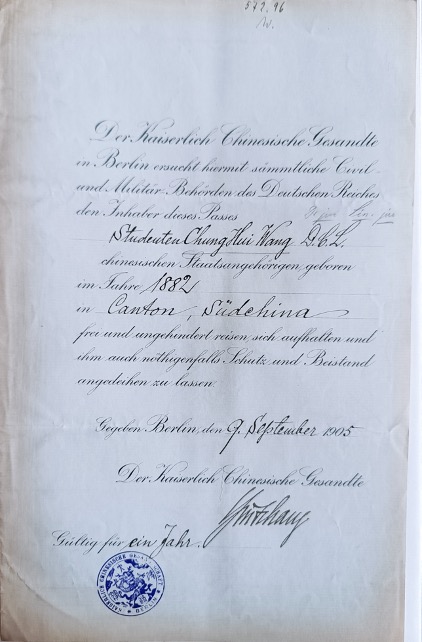 572.96
Der Kaiserlich Chinesische Gesandte
in Berlin ersucht hiermit sämmtliche Civil-
und Militär-Behörden des Deutschen Reiches
den Inhaber dieses Passes
Studenten Chung Hui Wang D.C.L.
chinesischen Staatsangehörigen, geboren
im Jahre 1882
in Canton, Südchina
frei und ungehindert reisen, sich aufhalten und
ihm auch nöthigenfalls Schutz und Beistand
angedeihen zu lassen.
Gegeben Berlin, den 9. September 1905
Der Kaiserlich Chinesische Gesandte
Gültig für ein Jahr.
KAISERLICH CHINESISCHE GESANDTSCHAFT
BERLIN